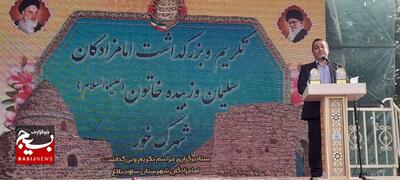 تکریم و بزرگداشت امامزادگان
سلیمان و زبیده خاتون (علیهما السلام)
شهرک خور
ستاد برگزاری مراسم تکریم و بزرگداشت
امامزادگان شهرستان ساوجبلاغ
خبرگزاری
بسیج
BASIJNEWS